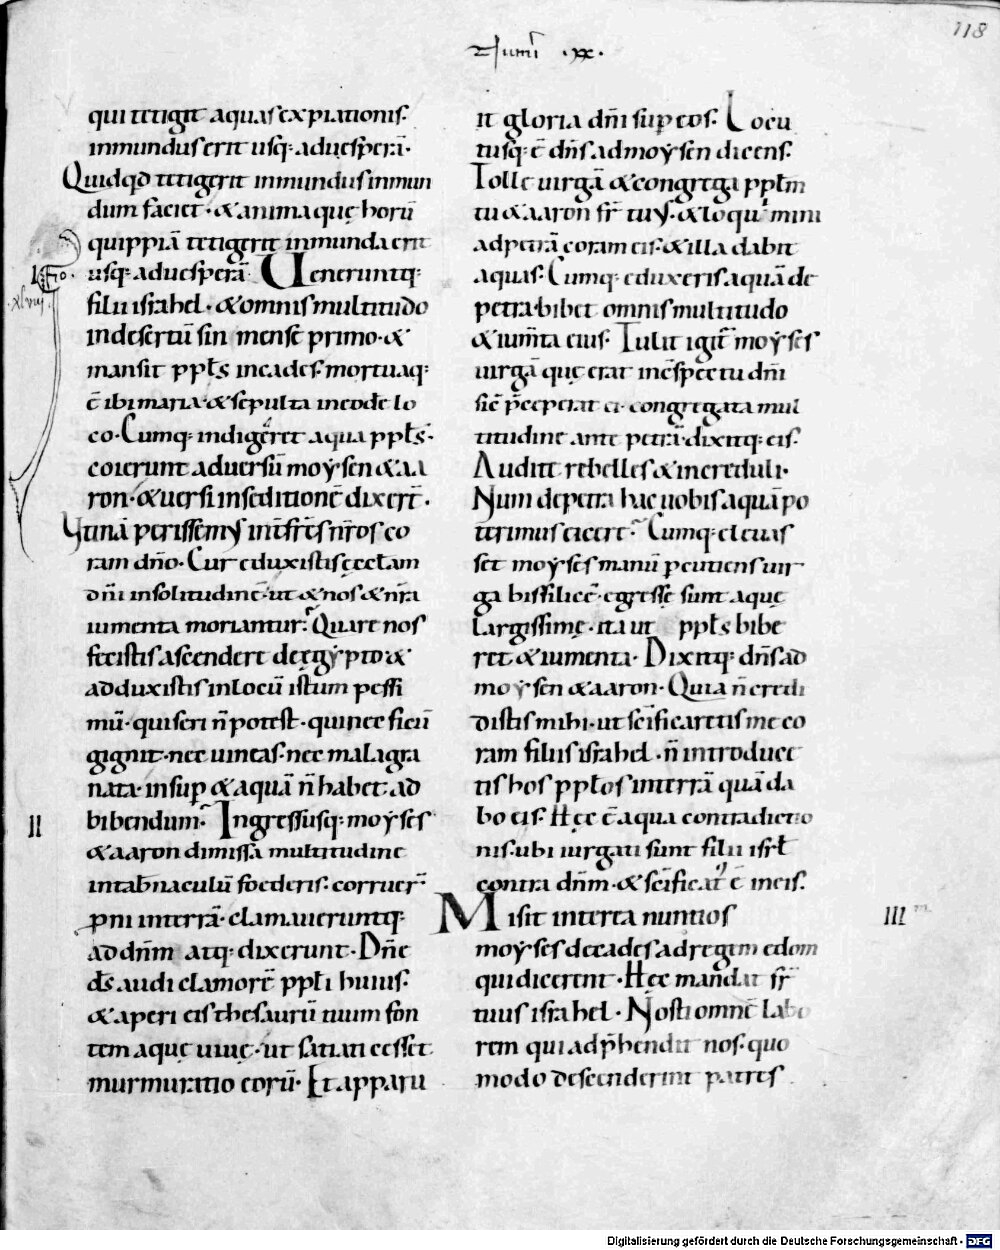 118
Numī .xx.
qui tetigit aquas expiationis.
inmundus erit usq; aduesperā.
Quidqd tetigerit inmundus inmun
dum faciet. & anima quę horū
quippiā tetigerit inmunda erit
usq; aduesperā. Ueneruntq;
filii israhel. & omnis multitudo
indesertū sin mense primo. &
mansit ppl̄s incades. mortuaq;
ē ibi maria. & sepulta ineodē lo
co. Cumq; indigēret aqua ppl̄s.
coierunt aduersū moysen & aa
ron. & uersi inseditionē dixer̄t.
Utinā perissemus int̄ frēs nr̄os co
ram dn̄o. Cur eduxistis ęccl̄am
dn̄i insolitudinē. ut & nos & nr̄a
iumenta moriantur. Quare nos
fecistis ascendere deęgypto. &
adduxistis inlocū istum pessi
mū. qui seri n̄ potest. qui nec ficū
gignit. nec uineas. nec malagra
nata. insup & aquā n̄ habet ad
bibendum. Ingressusq; moyses
II
& aaron dimissa multitudine
intab̄naculū foederis. corruer̄
pni interrā. clamaueruntq;
ad dn̄m atq; dixerunt. Dn̄e
ds̄ audi clamorē ppl̄i huius.
& aperi eis thesaurū tuum fon
tem aquę uiuę. ut satiati cesset
murmuratio eorū. Et apparu
it gloria dn̄i sup eos. Locu
tusq; ē dn̄s ad moysen dicens.
Tolle uirgā & congrega ppl̄m
tu & aaron fr̄ tuus. & loquimini
ad petrā coram eis. & illa dabit
aquas. Cumq; eduxeris aquā de
petra. bibet omnis multitudo
& ium̄ta eius. Tulit igit̄ moyses
uirgā quę erat incspectu dn̄i
sic̄ p̄ceperat ei. congregata mul
titudine ante petrā. dixitq; eis.
Audite rebelles & increduli.
Num depetra hac uobis aquā po
terimus eicere. Cumq; eleuas
set moyses manū percutiens uir
ga bis silicē. egressę sunt aquę
largissimę. ita ut ppl̄s bibe
ret & iumenta. Dixitq; dn̄s ad
moysen & aaron. Quia n̄ credi
distis mihi. ut sc̄ificaretis me co
ram filiis israhel. n̄ introduce
tis hos ppl̄os interrā quā da
bo eis. Hęc ē aqua contradictio
nis. ubi iurgati sunt filii isrl̄
contra dn̄m. & sc̄ificat' ē ineis.
Misit interea nuntios
III
moyses decades ad regem edom
qui dicerent. Hęc mandat fr̄
tuus israhel. Nosti omnē labo
rem qui adp̄hendit nos. quo
modo descenderint patres
Digitalisierung gefördert durch die Deutsche Forschungsgemeinschaft - DFG